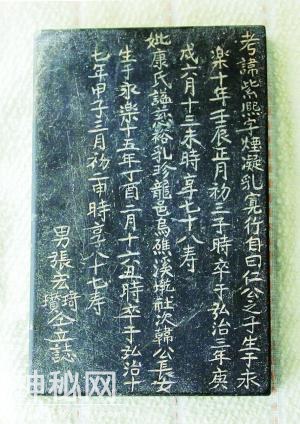 考諱紫熙字煙凝乳寬竹自曰仁公之子生于永
樂十年壬辰正月初三子時卒于弘治三年庚
戌六月十三未時享七十八寿
妣康氏謚裕乳珍龍邑烏礁溪墘社次韓公長女
生于永樂十五年丁酉二月十六丑時卒于弘治十
七年甲子三月初二申時享八十七寿
男張玄琦仝立誌
神秘网